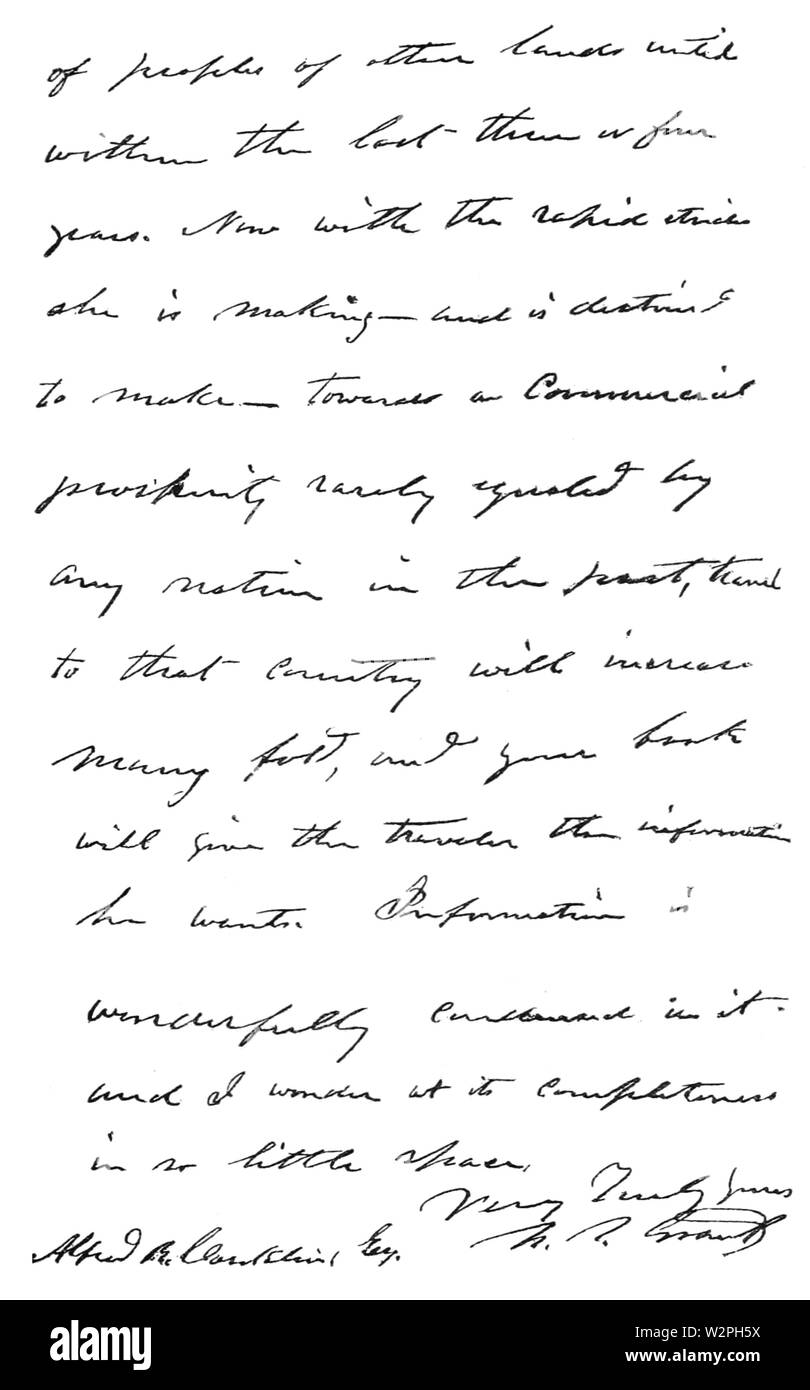 of peoples of other lands until
within the last three or four
years. Now with the rapid strides
she is making — and is destined
to make — towards a Commercial
prosperity rarely equaled by
any nation in the past, travel
to that country will increase
many fold, and your book
will give the traveler the information
he wants. Information is
wonderfully condensed in it.
and I wonder at its completeness
in so little space.
Very Truly yours
U. S. Grant
Alfred R. Conklin, Esq.
alamy
Image ID: W2PH5X
www.alamy.com